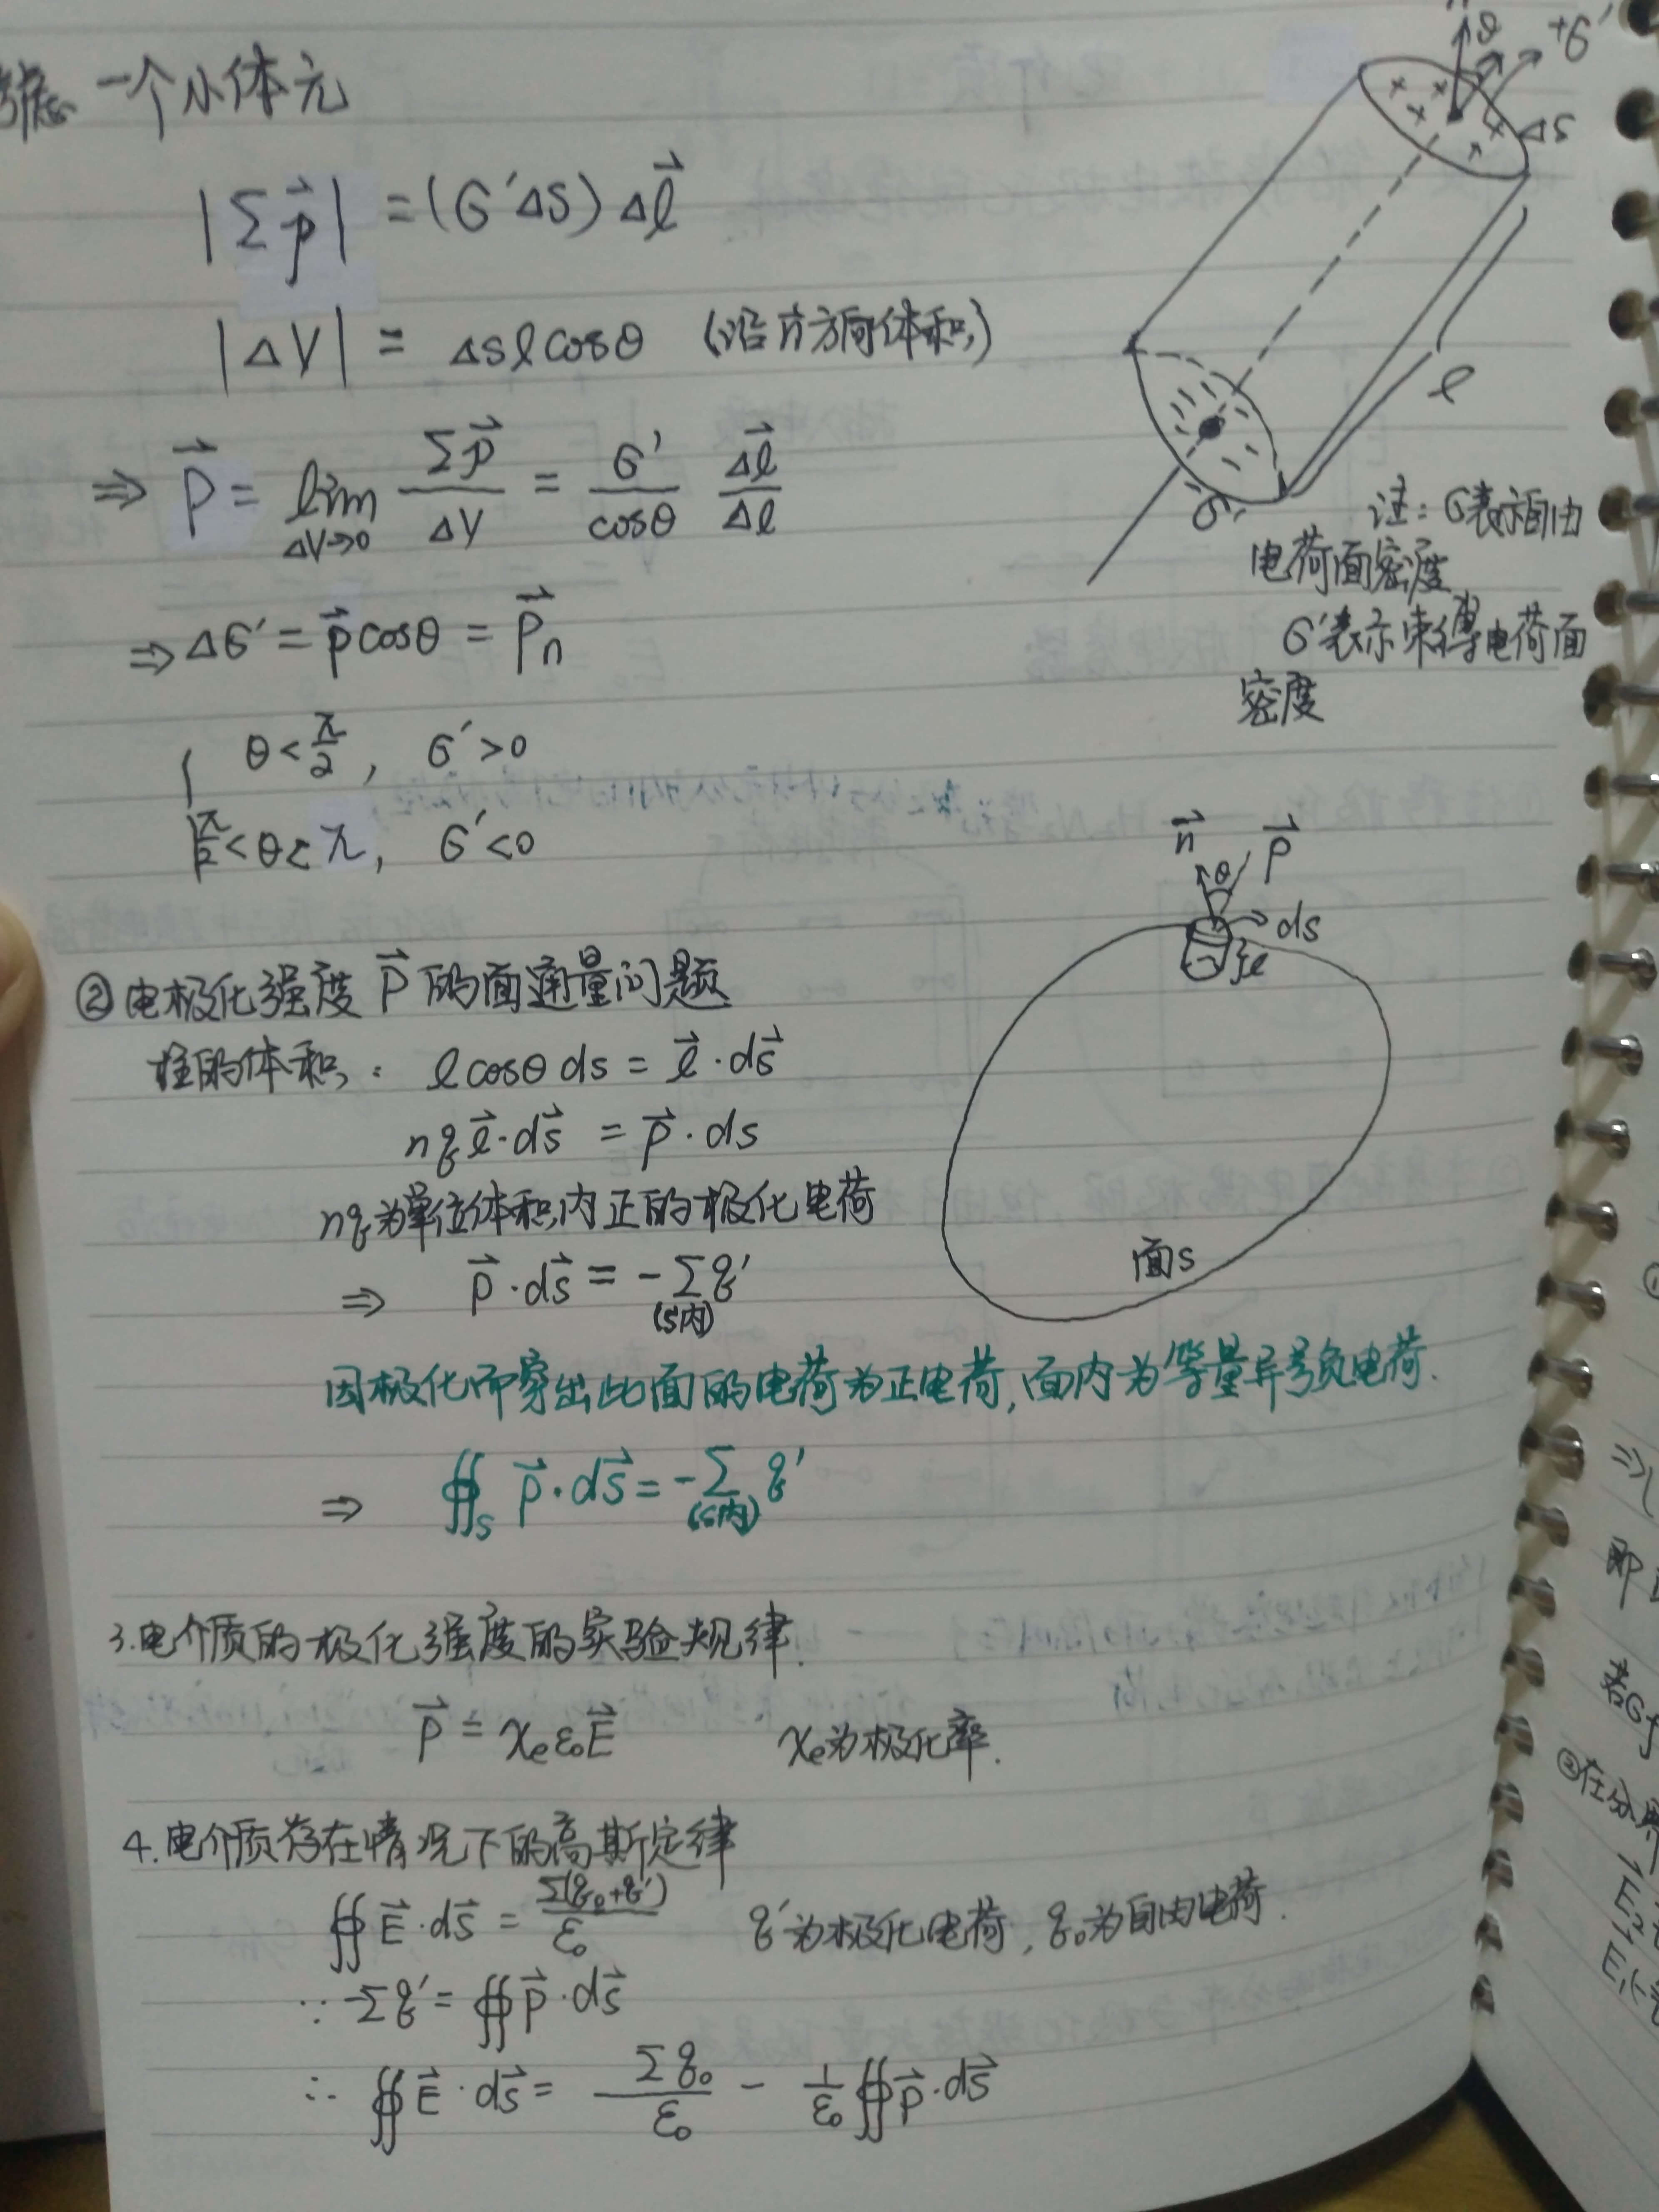 虑 一个小体元
|Σp⃗| = (σ'ΔS) Δl⃗
|ΔV| = Δslcosθ (沿n⃗方向体积)
⇒ P⃗ = lim ΔV→0 Σp⃗/ΔV = σ'/cosθ Δl⃗/Δl
⇒ Δσ' = p⃗cosθ = P⃗n
{ θ<π/2, σ'>0
π/2<θ<π, σ'<0
θ
+σ'
ΔS
l
-σ'
注：σ表示自由
电荷面密度
σ'表示束缚电荷面
密度
②电极化强度 P⃗ 的面通量问题
柱的体积： lcosθ ds = l⃗·ds⃗
nql⃗·ds⃗ = P⃗·ds
nq为单位体积内正的极化电荷
⇒ P⃗·ds⃗ = -Σq'
(S内)
n⃗ θ P⃗
ds
l
面S
因极化而穿出此面的电荷为正电荷,面内为等量异号负电荷.
⇒ ∯s P⃗·ds⃗ = -Σ(S内) q'
3.电介质的极化强度的实验规律.
P⃗ = χeε0E⃗ χe为极化率.
4.电介质存在情况下的高斯定律
∯E⃗·ds⃗ = Σ(q0+q')/ε0 q'为极化电荷, q0为自由电荷.
∵ -Σq' = ∯P⃗·ds⃗
∴ ∯E⃗·ds⃗ = Σq0/ε0 - 1/ε0 ∯P⃗·ds⃗
⇒
即
若σf
②在分界
E⃗2